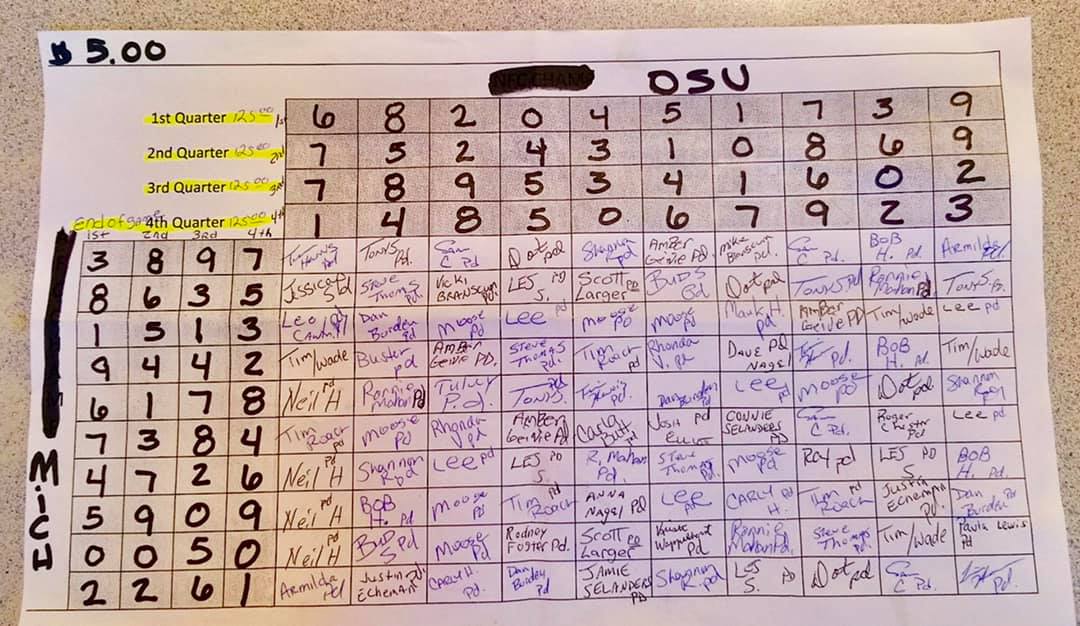 $ 5.00
OSU
1st Quarter 125.00 1st 6 8 2 0 4 5 1 7 3 9
2nd Quarter 125.00 2nd 7 5 2 4 3 1 0 8 6 9
3rd Quarter 125.00 3rd 7 8 9 5 3 4 1 6 0 2
End of game 4th Quarter 125.00 4th 1 4 8 5 0 6 7 9 2 3
1st 2nd 3rd 4th
MICH
3 8 9 7 Tony S Pd Dot pd Shannon pd AMBER Geivie Pd. C Pd. BOB H. Pd. Armilda Pd.
8 6 3 5 Jessica S Pd Steve Thomas Pd Vicki BRANSCUM pd. LES S. PD Scott Larger PD BUD S Pd Dot pd Tony S Pd Ronnie Pd Tony S. Pd.
1 5 1 3 Leo Pd Dan Burden pd Moose Pd Lee Pd moose PD moose Pd Mark H. pd AMBER Geivie PD Tim/Wade Lee pd
9 4 4 2 Tim/Wade Buster pd AMBER Geivie PD. Steve Thomas Pd Tim Roach pd Rhonda V. pd DAVE PD NAGEL Pd. BOB H. Pd. Tim/Wade
6 1 7 8 Neil H Pd Ronnie Pd P.d. Tony S. Pd Dan Burden Pd Lee pd moose PD Dot pd Shannon R pd
7 3 8 4 Tim Roach pd moose Pd Rhonda pd AMBER Geivie Pd Carla Butt Pd Josh Elliot pd CONNIE SELANDERS PD C Pd. Roger Pd Lee pd
4 7 2 6 Neil H Pd Shannon R pd Lee pd LES S. PD R. Pd. Steve Thomas Pd. moose pd Ray pd LES S. PD BOB H. Pd.
5 9 0 9 Neil H pd BOB H. Pd Moose Pd Tim Roach pd ANNA Nagel PD Lee pd CARLY H. Pd Tim Roach pd Justin Pd. Dan Burden Pd
0 0 5 0 Neil H Pd BUD S Pd Moose Pd Rodney Foster Pd. Scott Larger PD Pd Ronnie Pd. Steve Thomas Pd. Tim/Wade Paula Lewis Pd
2 2 6 1 Armilda pd Justin pd CARLY H. Pd. Dan Burden pd JAMIE SELANDERS PD Shannon R. pd LES S. PD Dot pd C Pd. Pd.